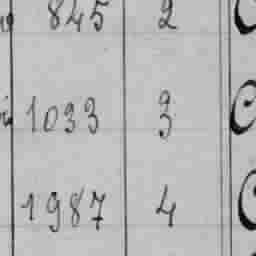 845 2
1033 3
1987 4